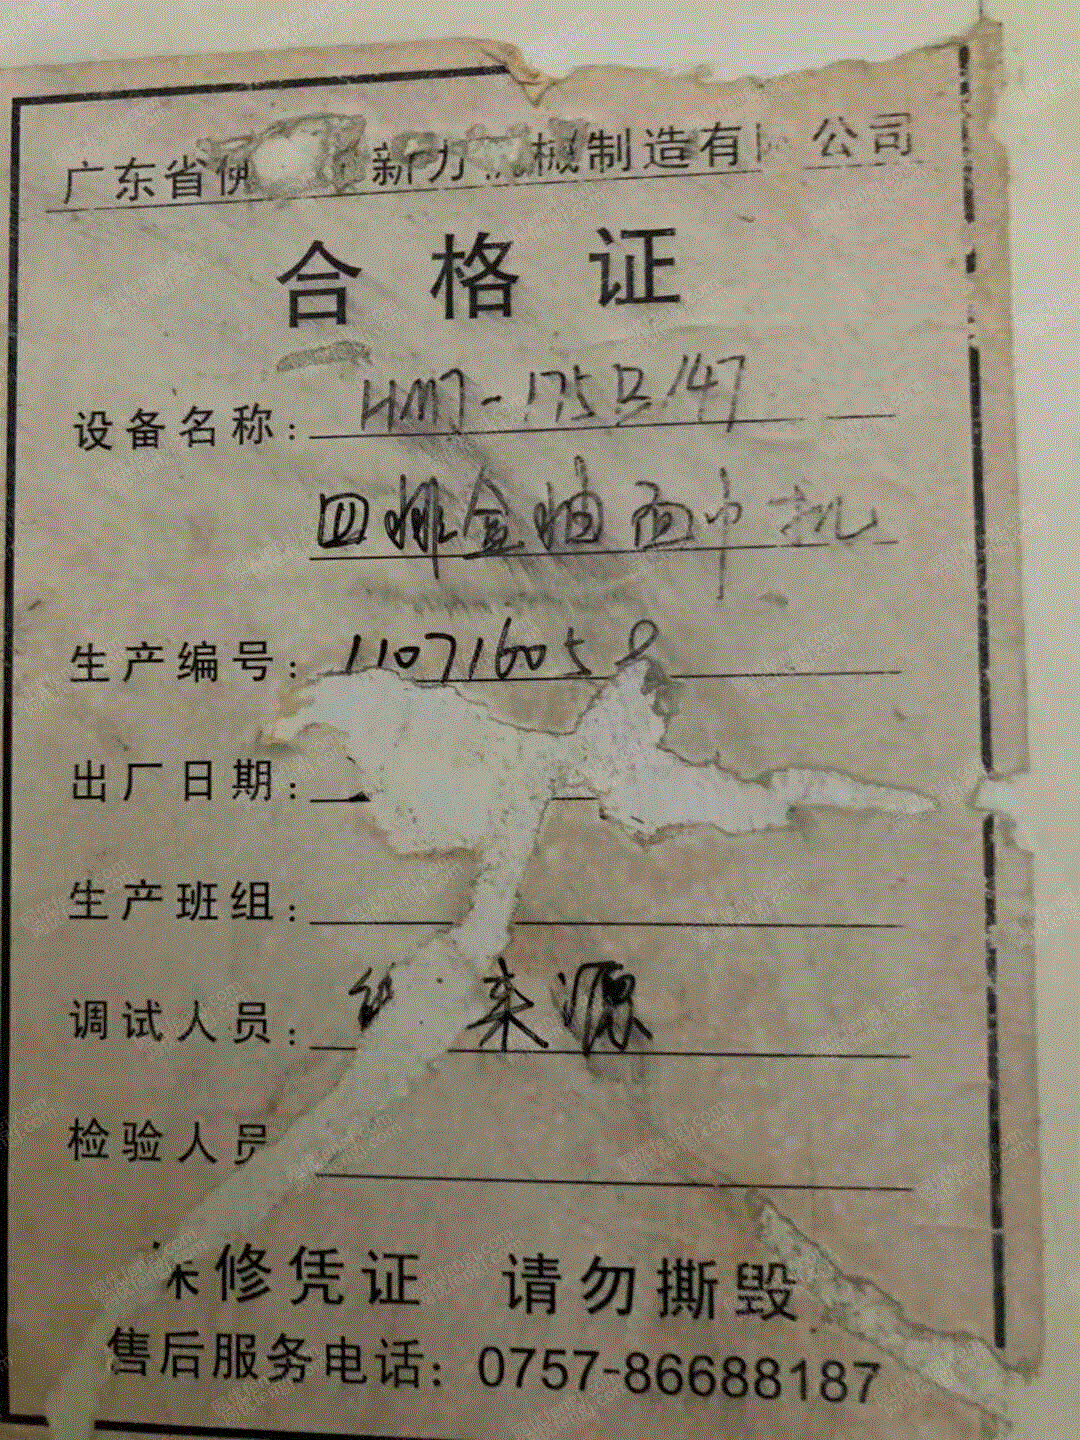 广东省佛 新力 械制造有 公司
合格证
设备名称: HMJ-175B/147
四排盒抽面巾机
生产编号: 110716058
出厂日期:
生产班组:
调试人员: 来源
检验人员
保修凭证 请勿撕毁
售后服务电话: 0757-86688187